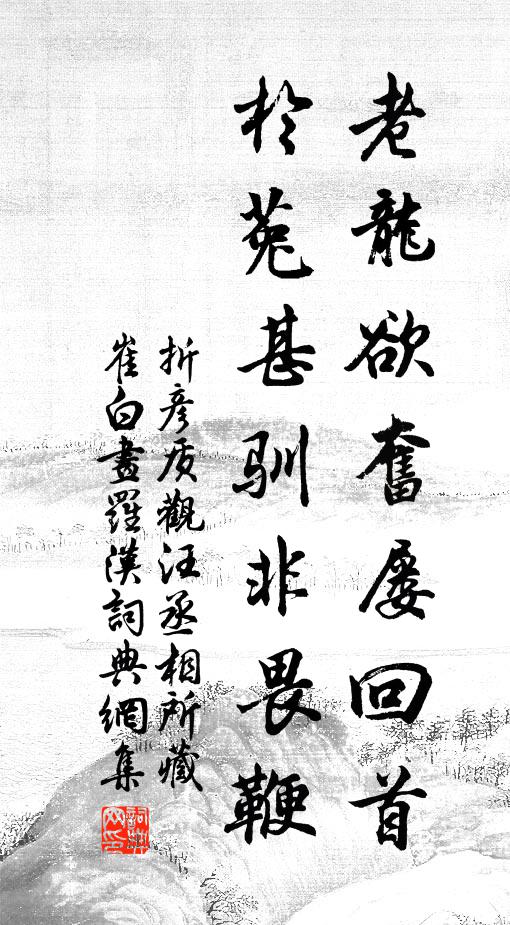 老龍欲奮屡回首
於菟甚馴非畏鞭
折彦质觀汪丞相所藏
崔白畫羅漢詞典網集